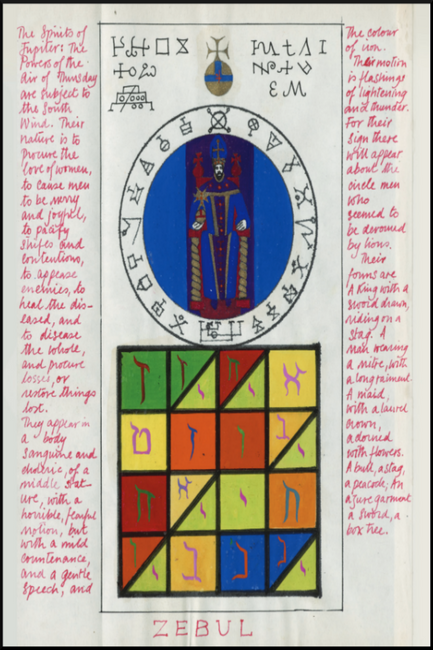 The Spirits of
Jupiter: The
Powers of the
Air of Thursday
are subject to
the South
Wind. Their
nature is to
procure the
love of women,
to cause men
to be merry
and joyful,
to pacify
strifes and
contentions,
to appease
enemies, to
heal the dis-
eased, and
to disease
the whole,
and procure
losses, or
restore things
lost.
They appear in
a body
sanguine and
choleric, of a
middle stat-
ure, with a
horrible, fearful
motion, but
with a mild
countenance,
and a gentle
speech, and
The colour
of iron.
Their motion
is flashings
of lightening
and thunder.
For their
sign there
will appear
about the
circle men
who
seemed to
be devoured
by lions.
Their
forms are
A King with a
sword drawn,
riding on a
stag. A
man wearing
a mitre, with
a long raiment.
A maid,
with a laurel
crown,
adorned
with flowers.
A bull, a stag,
a peacock, An
azure garment
a sword, a
box tree.
א יה יד ד
יב ו ז ט
ח י יא ה
יג ג ב יו
ZEBUL